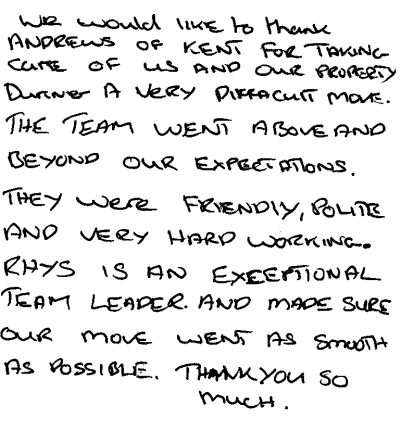 WE would LIKE to thank
ANDREWS OF KENT FOR TAKING
CARE OF US AND OUR PROPERTY
DURING A VERY DIFFACULT MOVE.
THE TEAM WENT ABOVE AND
BEYOND OUR EXPECTATIONS.
THEY WERE FRIENDLY, POLITE
AND VERY HARD WORKING.
RHYS IS AN EXCEPTIONAL
TEAM LEADER. AND MADE SURE
OUR MOVE WENT AS SMOOTH
AS POSSIBLE. THANKYOU SO
MUCH.